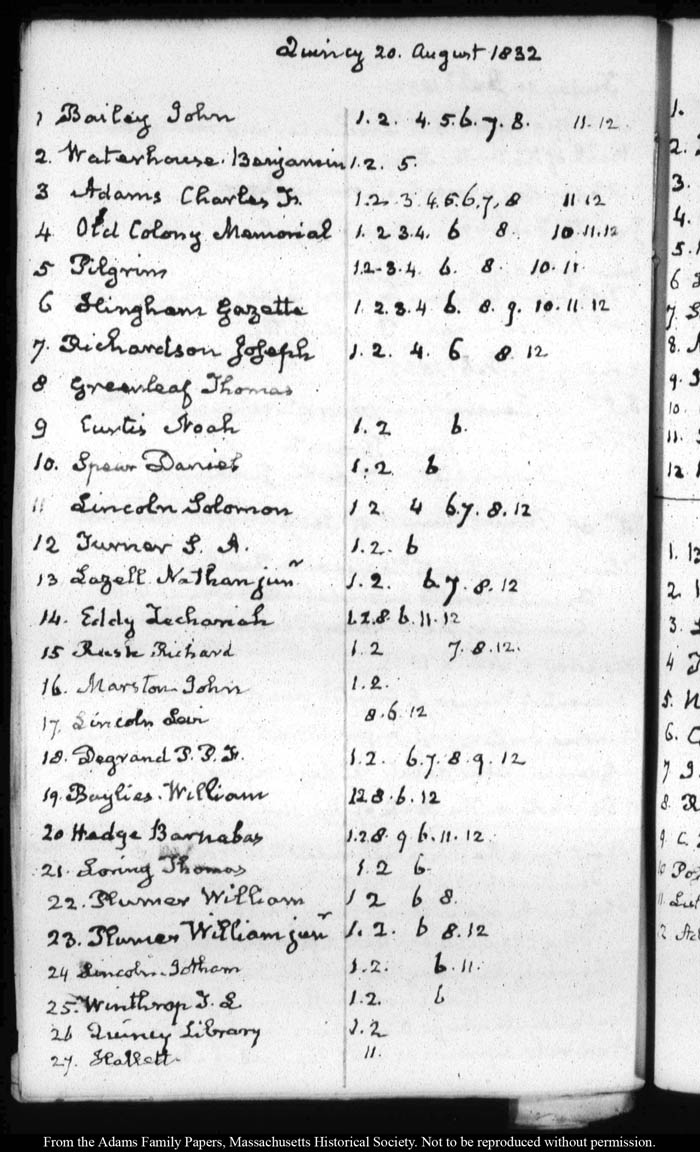 Quincy 20. August 1832
1 Bailey John 1. 2. 4. 5. 6. 7. 8. 11. 12.
2. Waterhouse. Benjamin 1. 2. 5.
3 Adams Charles F. 1. 2. 3. 4. 5. 6. 7. 8 11 12
4 Old Colony Memorial 1. 2 3. 4. 6 8. 10. 11. 12
5 Pilgrim 1. 2. 3. 4. 6. 8. 10. 11.
6 Hingham Gazette 1. 2. 3. 4 6. 8. 9. 10. 11. 12
7. Richardson Joseph 1. 2. 4. 6 8. 12
8 Greenleaf Thomas
9 Curtis Noah 1. 2 6.
10. Spear Daniel 1. 2 6
11 Lincoln Solomon 1 2 4 6. 7. 8. 12
12 Turner S. A. 1. 2. 6
13 Lazell Nathan junr 1. 2. 6. 7. 8. 12
14. Eddy Zechariah 1. 2. 8. 6. 11. 12
15 Rush Richard 1. 2 7. 8. 12.
16. Marston John 1. 2.
17. Lincoln Levi 8. 6. 12
18. Degrand P. P. F. 1. 2. 6. 7. 8. 9. 12
19. Baylies. William 1 2 8. 6. 12
20 Hedge Barnabas 1. 2. 8. 9 6. 11. 12.
21. Loring Thomas 1. 2 6.
22. Plumer William 1 2 6 8.
23. Plumer William junr 1. 2. 6 8. 12
24 Lincoln. Jotham 1. 2. 6. 11.
25. Winthrop T. L 1. 2. 6
26 Quincy Library 1. 2
27. Hallett 11.
1.
2.
3.
4.
5.
6
7.
8.
9.
10.
11.
12
1. 12
2.
3.
4
5. N
6. C
7
8. R
9 C.
10 Pos
11.
2
From the Adams Family Papers, Massachusetts Historical Society. Not to be reproduced without permission.